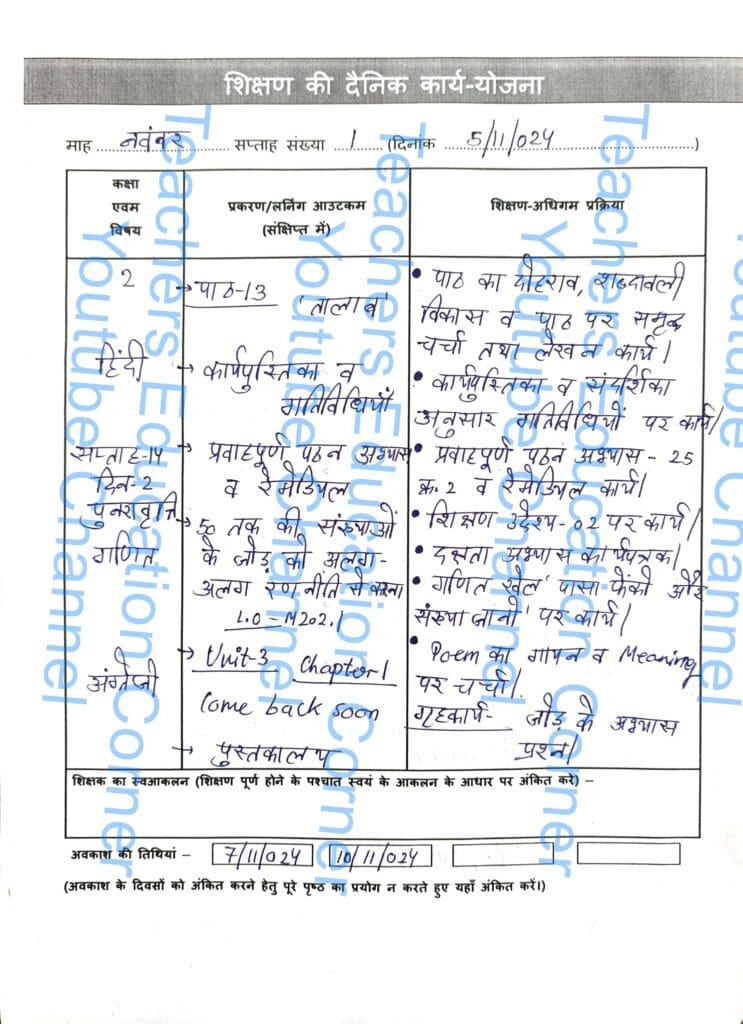 शिक्षण की दैनिक कार्य-योजना
माह नवंबर सप्ताह संख्या 1 (दिनांक 5/11/024)
कक्षा एवम विषय
प्रकरण/लर्निंग आउटकम (संक्षिप्त में)
शिक्षण-अधिगम प्रक्रिया
2
हिंदी
सप्ताह-14
दिन-2
पुनरावृत्ति
गणित
अंग्रेजी
→ पाठ-13
'तालाब'
→ कार्यपुस्तिका व
गतिविधियाँ
→ प्रवाहपूर्ण पठन अभ्यास
व रेमेडियल
→ 50 तक की संख्याओं
के जोड़ को अलग-
अलग रणनीति से करना
L.O-M202.1
→ Unit-3 Chapter-1
Come back soon
→ पुस्तकालय
• पाठ का दोहराव, शब्दावली
विकास व पाठ पर समृद्ध
चर्चा तथा लेखन कार्य।
• कार्यपुस्तिका व संदर्शिका
अनुसार गतिविधियों पर कार्य।
• प्रवाहपूर्ण पठन अभ्यास - 25
क्र.2 व रेमेडियल कार्य।
• शिक्षण उद्देश्य-02 पर कार्य।
• दक्षता अभ्यास कार्यपत्रक।
• गणित खेल 'पासा फेंको और
संख्या जानो' पर कार्य।
• Poem का गायन व Meaning
पर चर्चा।
गृहकार्य- जोड़ के अभ्यास
प्रश्न।
शिक्षक का स्वआकलन (शिक्षण पूर्ण होने के पश्चात स्वयं के आकलन के आधार पर अंकित करें) –
अवकाश की तिथियां – 7/11/024 10/11/024
(अवकाश के दिवसों को अंकित करने हेतु पूरे पृष्ठ का प्रयोग न करते हुए यहाँ अंकित करें।)
Teachers Education Corner
Youtube Channel
Teachers Education Corner
Youtube Channel
Teachers Education Corner
Youtube Channel